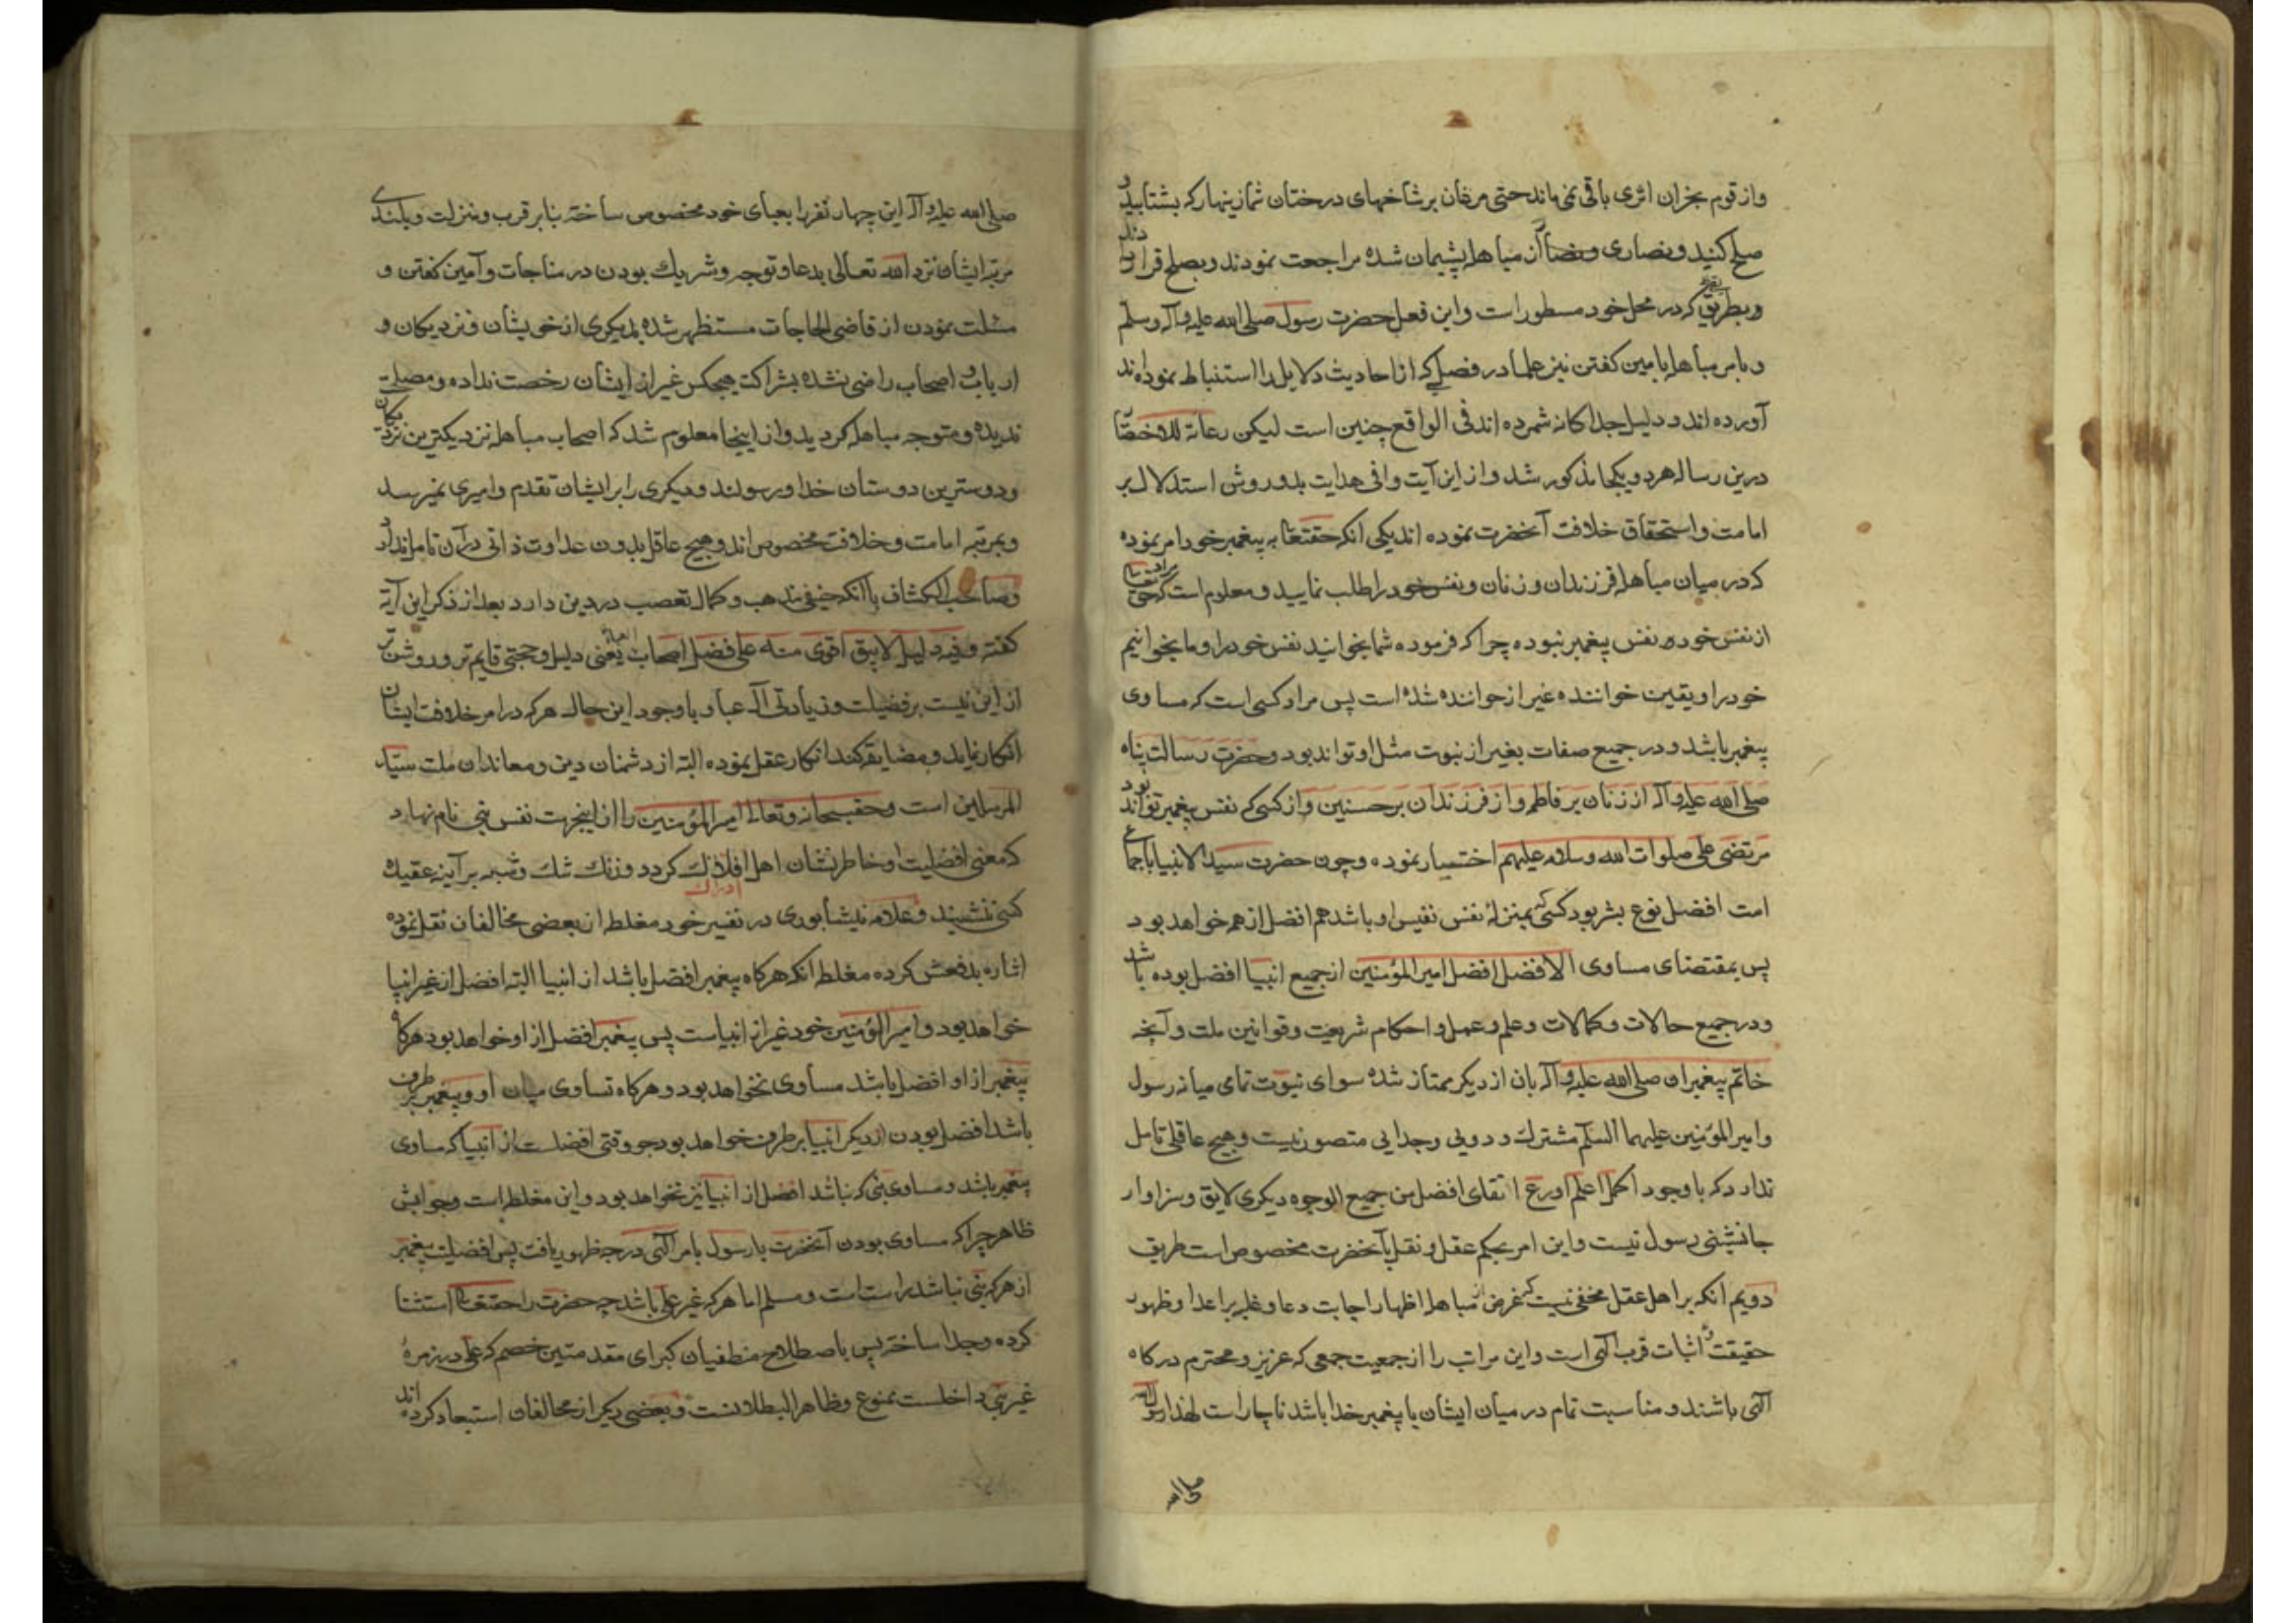 واز قوم نجران اثری باقی نمی‌ماند حتی مرغان بر شاخهای درختان شما زینهار که بشتابید و
صلح کنید و نصاری از مباهله پشیمان شده مراجعت نمودند و بصلح قرار دادند
و بطریقی که در محل خود مسطور است و این فعل حضرت رسول صلی الله علیه وآله وسلم
و بامر مباهله بامین کفتن نیز علما در فصلی که از احادیث دلایل را استنباط نموده اند
آورده اند و دلیل جداکانه شمرده اند فی الواقع چنین است لیکن رعایة للاختصار
درین رساله هر دو یکجا مذکور شد و از این آیت وافی هدایت بدو روش استدلال بر
امامت و استحقاق خلافت آنحضرت نموده اند یکی انکه حقتعا به پیغمبر خود امر نموده
که در میان مباهله فرزندان و زنان و نفس خود را طلب نمایید و معلوم است که
از نفس خود نفس پیغمبر نبوده چرا که فرموده شما بخوانید نفس خود را و ما بخوانیم
خود را و یقین خواننده غیر از خوانده شده است پس مراد کسی است که مساوی
پیغمبر باشد و در جمیع صفات بغیر از نبوت مثل او تواند بود و حضرت رسالت پناه
صلی الله علیه وآله از زنان بر فاطمه و از فرزندان بر حسنین و از کسی که نفس پیغمبر تواند بود
مرتضی علی صلوات الله وسلامه علیهم اختیار نموده و چون حضرت سید الانبیا باجماع
امت افضل نوع بشر بود کسی که بمنزلهٔ نفس نفیس او باشد هم افضل از همه خواهد بود
پس بمقتضای مساوی الافضل افضل امیرالمؤمنین از جمیع انبیا افضل بوده باشد
و در جمیع حالات و کمالات و علم و عمل و احکام شریعت و قوانین ملت و آنچه
خاتم پیغمبران صلی الله علیه وآله بان از دیکر ممتاز شده سوای نبوت تمامی میانه رسول
و امیرالمؤمنین علیهما السلم مشترک و دویی و جدایی متصور نیست و هیچ عاقلی تامل
ندارد که باوجود اکمل اعلم اورع اتقای افضل من جمیع الوجوه دیکری لایق و سزاوار
جانشینی رسول نیست و این امر بحکم عقل و نقل بآنحضرت مخصوص است طریق
دویم انکه بر اهل عقل مخفی نیست که غرض از مباهله اظهار اجابت دعا و غلبه بر اعدا و ظهور
حقیقت و اثبات قرب الهی است و این مراتب را از جمعیت جمعی که عزیز و محترم درکاه
الهی باشند و مناسبت تمام در میان ایشان با پیغمبر خدا باشد ناچار است لهذا رسول الله
صلی الله
صلی الله علیه وآله این چهار نفر را بعبای خود مخصوص ساخته بنا بر قرب و منزلت و بلندی
مرتبه ایشان نزد الله تعالی بدعا و توجه و شریک بودن در مناجات و آمین کفتن و
مسئلت نمودن از قاضی الحاجات مستظهر شده بدیکری از خویشان و نزدیکان و
ارباب و اصحاب راضی نشده بشراکت هیچکس غیر از ایشان رخصت نداده و مصلحت
ندیده و متوجه مباهله کردید و از اینجا معلوم شد که اصحاب مباهله نزدیکترین نزدیکان
و دوسترین دوستان خدا و رسولند و دیکری را بر ایشان تقدم و امیری نمیرسد
و بمرتبه امامت و خلافت مخصوص اند و هیچ عاقل بدون عداوت ذاتی در آن تامل ندارد
و صاحب الکشاف با انکه حنفی مذهب و کمال تعصب در دین دارد بعد از ذکر این آیه
کفته و فیه دلیل لایبق اقوی منه علی فضل اصحاب العبا یعنی دلیل و حجتی قایم تر و روشن تر
از این نیست بر فضیلت و زیادتی آل عبا و باوجود این حال هر که در امر خلافت ایشان
انکار نماید و مضایقه کند انکار عقل نموده البته از دشمنان دین و معاندان ملت سید
المرسلین است و حقسبحانه وتعالی امیرالمؤمنین را از اینجهت نفس نبی نام نهاد
که معنی افضلیت او خاطرنشان اهل ادراک کردد و زنک شک و شبه بر آینه عقیده
کسی ننشیند و علامه نیشابوری در تفسیر خود مغلطه از بعضی مخالفان نقل نموده
اشاره بدفعش کرده مغلطه انکه هرکاه پیغمبر افضل باشد از انبیا البته افضل از غیر انبیا
خواهد بود و امیرالمؤمنین خود غیر از انبیاست پس پیغمبر افضل از او خواهد بود هرکاه
پیغمبر از او افضل باشد مساوی نخواهد بود و هرکاه تساوی میان او و پیغمبر بر طرف
باشد افضل بودن از دیکر انبیا بر طرف خواهد بود چو وقتی افضلست از انبیا که مساوی
پیغمبر باشد و مساوی نبی که نباشد افضل از انبیا نیز نخواهد بود و این مغلطه است و جوابش
ظاهر چرا که مساوی بودن آنحضرت با رسول بامر الهی درجه ظهور یافت پس افضلیت پیغمبر
از هر که نبی نباشد راست است و مسلم اما هر که غیر علی باشد چه حضرت را حقتعا استثنا
کرده و جدا ساخته پس باصطلاح منطقیان کبرای مقدمتین خصم که علی در زمرهٔ
غیر نبی داخلست ممنوع و ظاهر البطلانست و بعضی دیکر از مخالفان استبعاد کرده اند